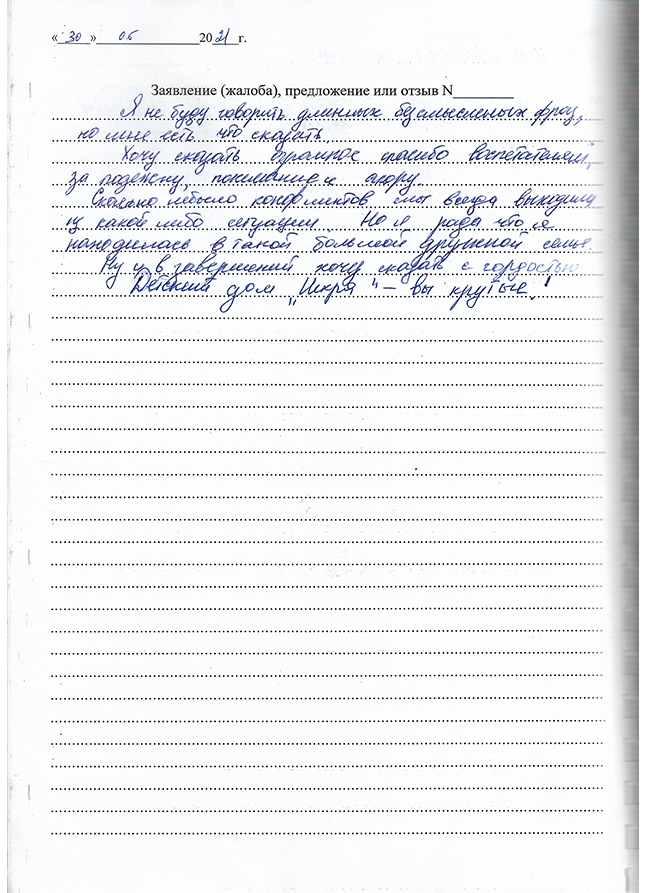 «30» 06 2021 г.
Заявление (жалоба), предложение или отзыв N
Я не буду говорить длинных безмысленных фраз,
но мне есть что сказать.
Хочу сказать огромное спасибо воспетателям,
за подежку, понимание и опору
Сколько небыло конфликтов мы всегда выходили
из какой либо ситуации Но я рада что я
находилась в такой большой дружной семье.
Ну и в завершений хочу сказать с гордостью
Детский дом „Искра“ – вы крутые!